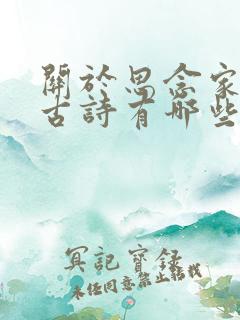 關於思念家
古詩有哪些
冥記寶録
未經同意禁止轉載